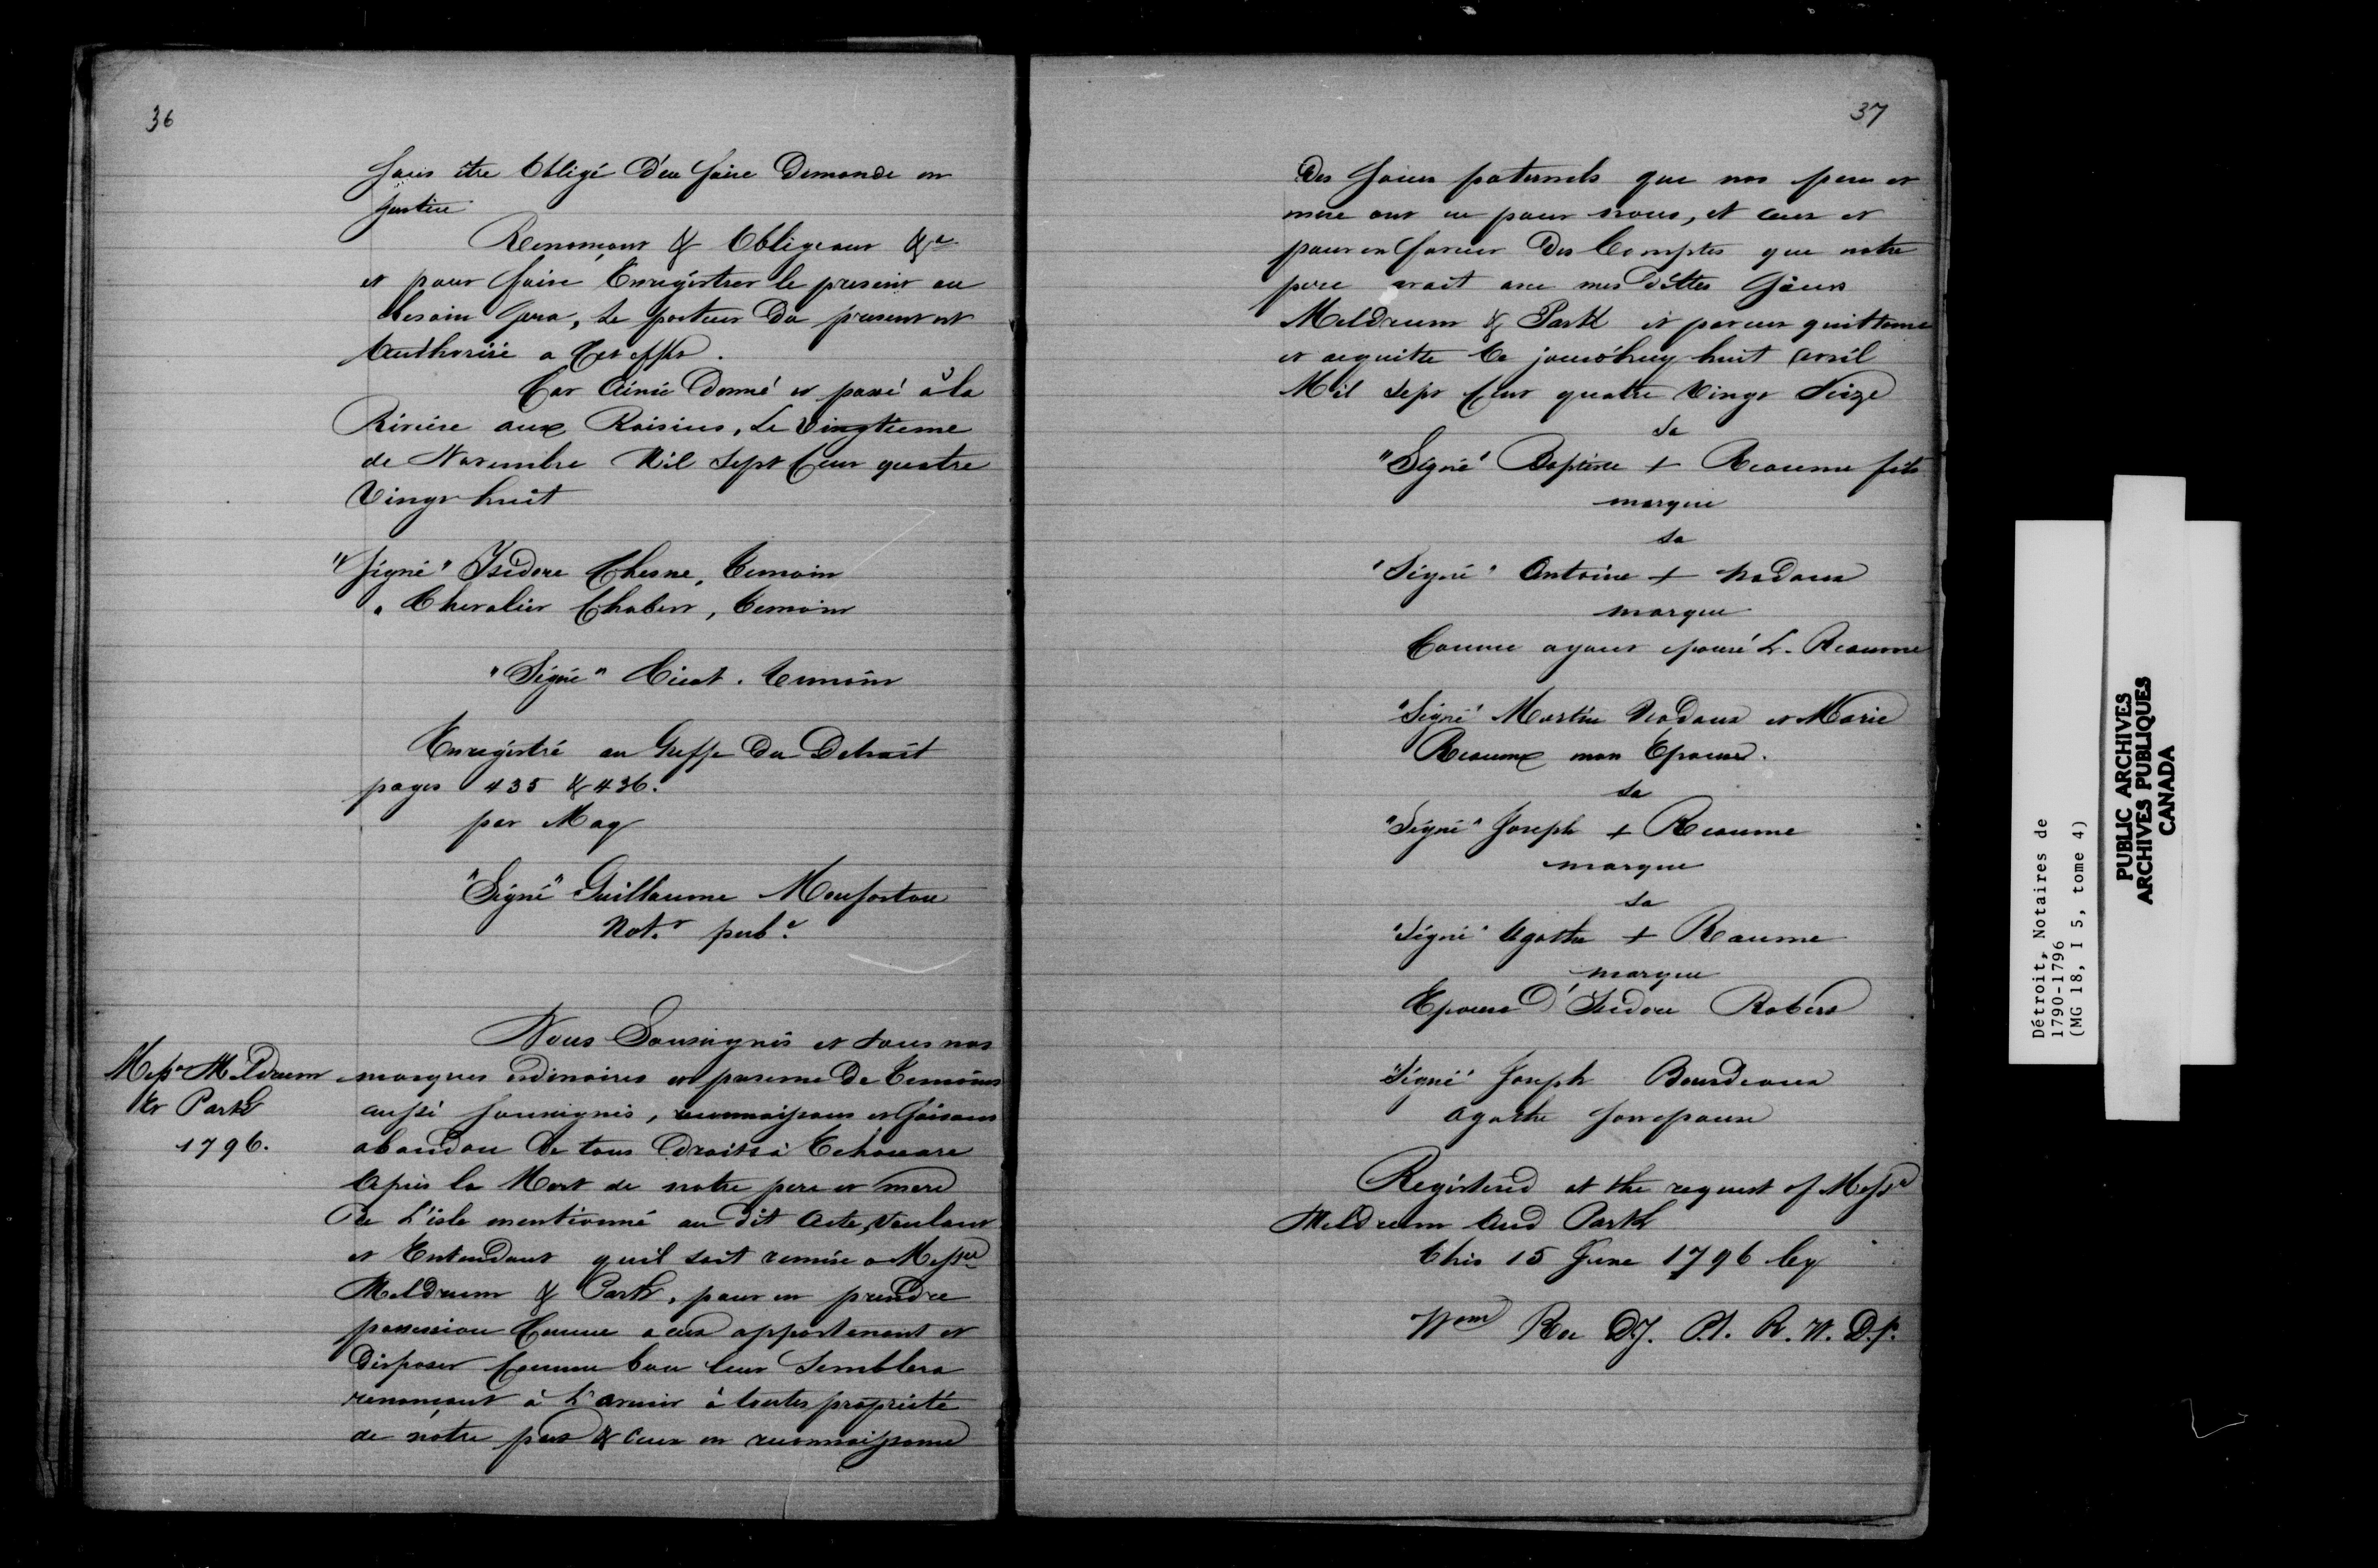 36
sans être Obligé d'en faire Demande en
Justice
Renonçant & Obligeant &a
et pour faire Enregistrer le present au
besoin sera, Le porteur du present est
Authorisé a Cet effet.
Car Ainsi Donné et passé à la
Rivière aux Raisins, Le Vingtieme
de Novembre Mil Sept Cent quatre
Vingt huit
"Signé" Isidore Chesne, Temoin
" Chevalier Chabert, Temoin
"Signé" Cicot. Temoin
Enregistré au Greffe du Detroit
pages 435 & 436.
par Moy
"Signé" Guillaume Monforton
Not.r pub.c
Messrs Meldrum
et Park
1796.
Nous Soussignés et sous nos
marques ordinaires en presence de Temoins
aussi soussignés, reconnaissons et faisons
abandon de tous droits à Echouare
Après la Mort de notre pere et mere
De L'isle mentionné au dit Acte, Voulant
et Entendant quil soit remise a Messrs
Meldrum & Park, pour en prendre
possession Comme a eux appartenant et
Disposer Comme bon leur Semblera
renonçant à L'avenir à toutes propriété
de nôtre part & Ceux en reconnaissance
37
Des soins paternels que nos pere et
mere ont eu pour nous, et ceux et
pour en faveur Des Comptes que notre
pere avait avec mes dittes Sieurs
Meldrum & Park et par eux quittance
et acquitte Ce jourd'huy huit Avril
Mil Sept Cent quatre Vingt Seize
Sa
"Signé" Baptiste + Reaume fils
marque
Sa
"Signé" Antoine + Nadeau
marque
Comme ayant epousé L. Reaume
"Signé" Martin Nadeau et Marie
Reaume mon Epouse.
Sa
"Signé" Joseph + Reaume
marque
Sa
"Signé" Agathe + Reaume
marque
Epouse D'Isidore Robert
"Signé" Joseph Bourdeaux
Agathe son epouse
Registered at the request of Messrs
Meldrum and Park
this 15 June 1796 by
Wm Roe D.J. Ct. R. W. D.
Détroit, Notaires de
1790-1796
(MG 18, I 5, tome 4)
PUBLIC ARCHIVES
ARCHIVES PUBLIQUES
CANADA